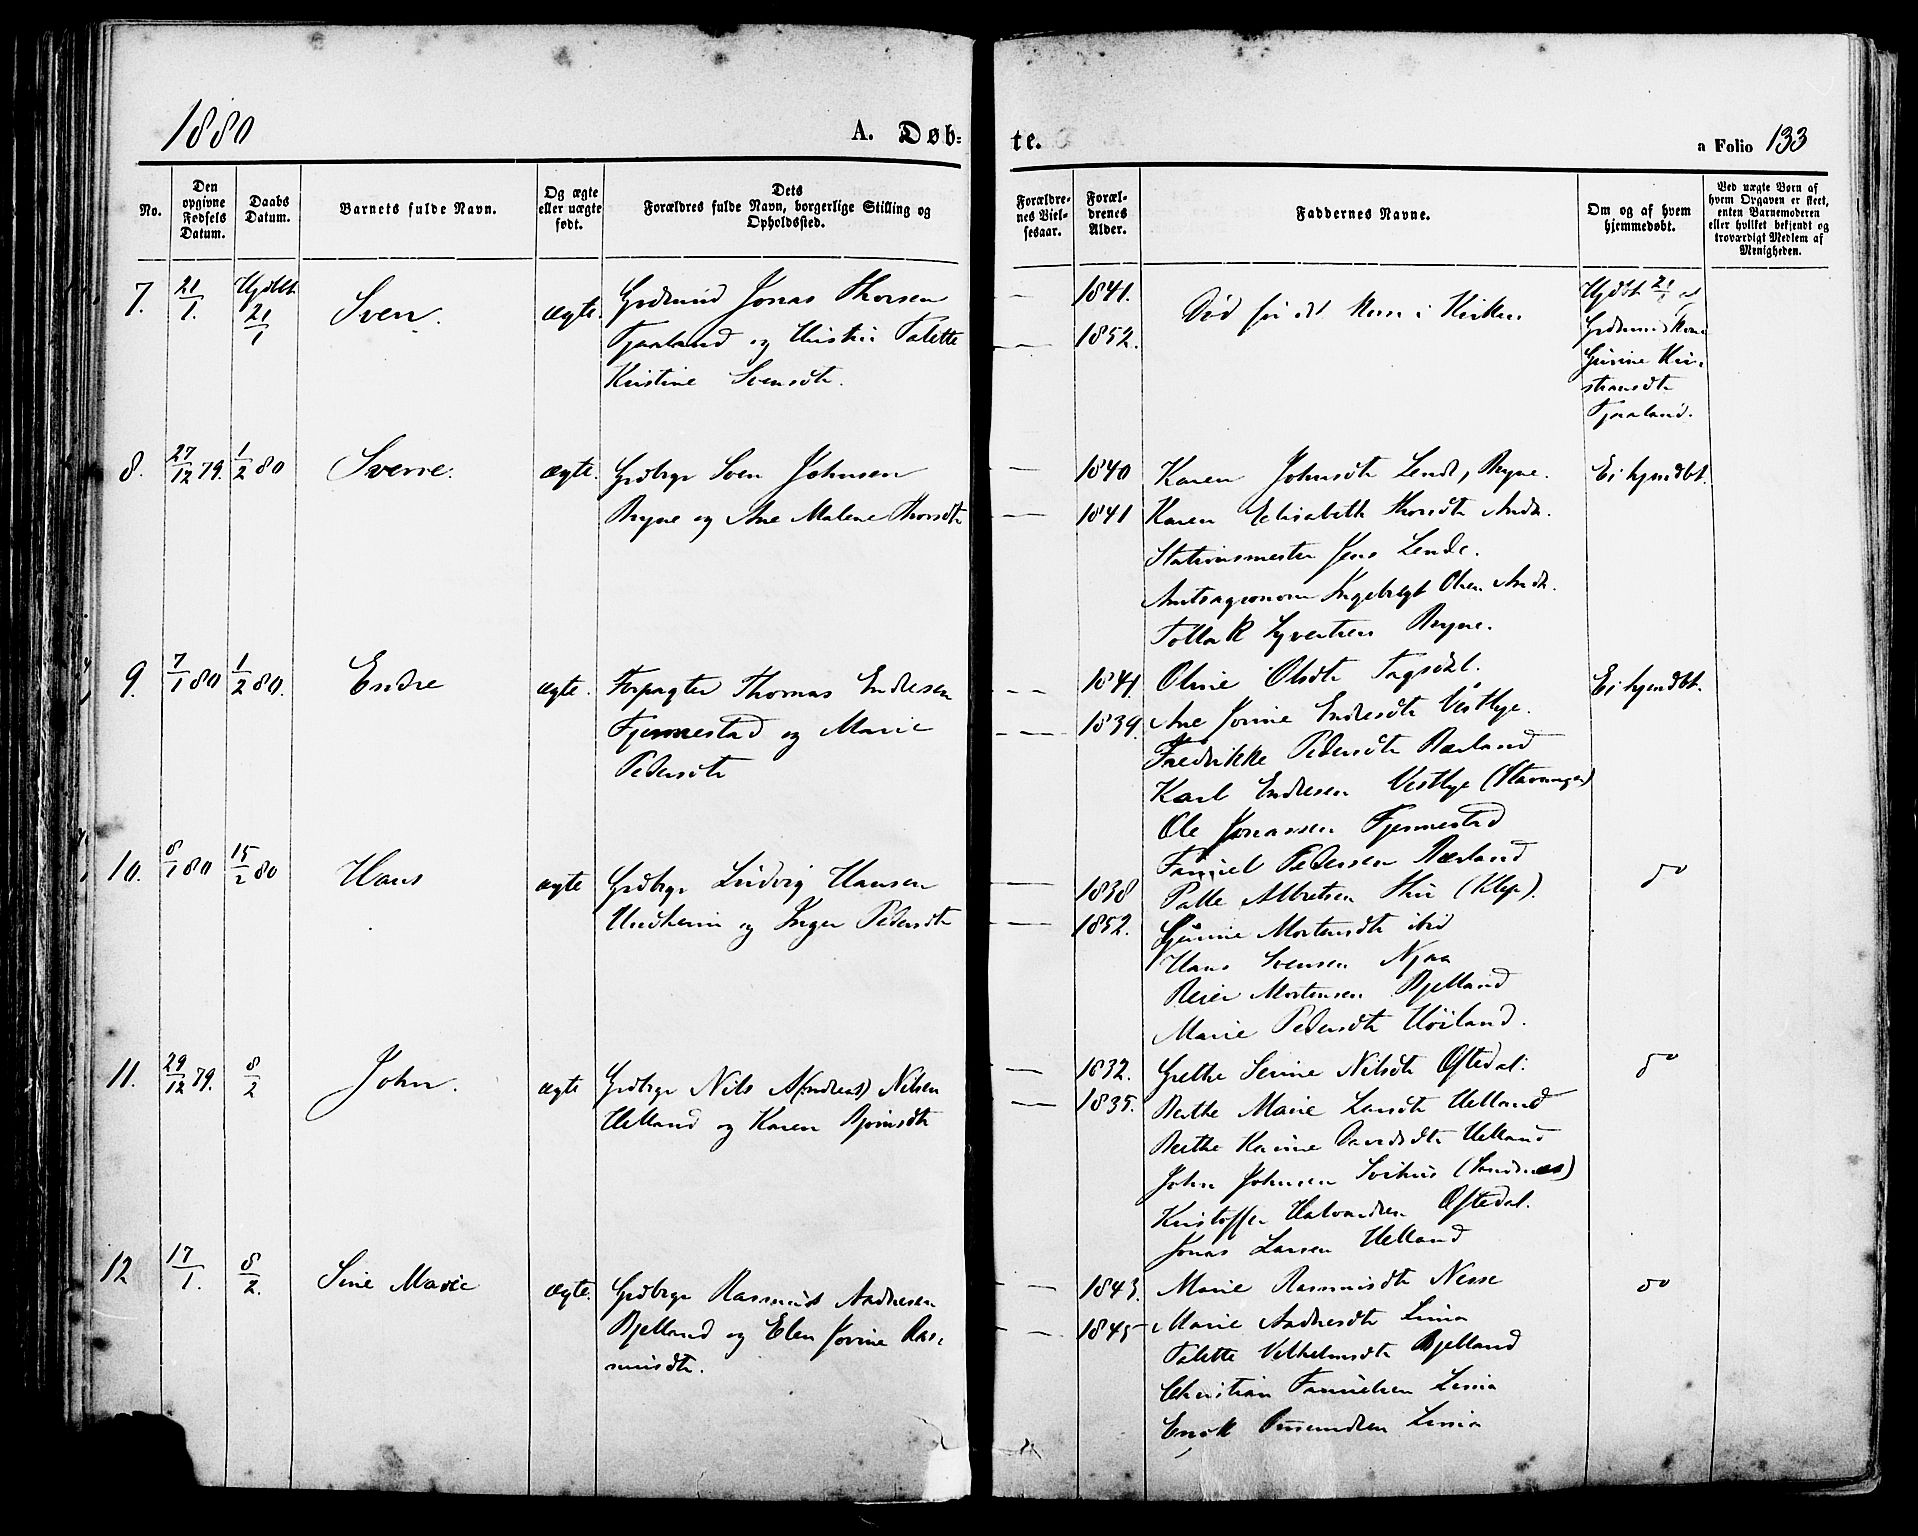 1880
A. Døb=
te.
a Folio 133
No.
Den opgivne Fødsels Datum.
Daabs Datum.
Barnets fulde Navn.
Og ægte eller uægte født.
Dets
Forældres fulde Navn, borgerlige Stilling og
Opholdssted.
Forældre-
nes Viel-
sesaar.
Foræl-
drenes
Alder.
Faddernes Navne.
Om og af hvem
hjemmedøbt.
Ved uægte Børn af
hvem Opgaven er skeet,
enten Barnemoderen
eller hvilket bekjendt og
troværdigt Medlem af
Menigheden.
7. 21/1. Hjdbt 21/1 Sven. ægte. Grdmand Jonas Thorsen
Tjaaland og Hustru Talette
Kristine Svensdtr.
1841.
1852.
Død før det kom i Kirken
Hjdbt 21/1 af
Grdmandskone
Gurine Kri-
stiansdtr
Tjaaland.
8. 27/12 79. 1/2 80 Sverre. ægte. Grdbrgr Sven Johnsen
Bryne og Ane Malene Thorsdtr
1840
1841
Karen Johnsdtr Lende, Bryne.
Karen Elisabeth Thorsdtr Anda.
Stationsmester Jens Lende.
Amtsagronom Ingebregt Olsen Anda.
Tollak Syvertsen Bryne.
Ei hjemdbt.
9. 7/1 80 1/2 80. Endre ægte. Forpagter Thomas Endresen
Fjermestad og Marie
Pedersdtr
1841.
1839.
Oline Olsdtr
Ane Jorine Endresdtr Vestlye.
Fredrikke Pedersdtr Bærland
Karl Endresen Vestlye (Stavanger)
Ole Jonassen Fjermestad
Samuel Pedersen Bærland
Ei hjemdbt.
10. 8/1 80 15/2 80 Hans ægte Grdbrgr Ludvig Hansen
Undheim og Inger Pedersdtr
1838
1852.
Palle Albretsen Thu (Klep).
Gurine Mortensdtr ibid
Hans Svensen Njaa
Reier Mortensen Bjelland
Marie Pedersdtr Høiland.
do
11. 29/12 79. 8/2 John. ægte Grdbrgr Nils A(ndreas) Nilsen
Helland og Karen Bjørnsdtr
1832.
1835.
Grethe Serine Nilsdtr Oftedal.
Berthe Marie Larsdtr Helland
Berthe Karine Davidsdtr Helland
John Johnsen Svihus (Sandnæs)
Kristoffer Halvardsen Oftedal.
Jonas Larsen Helland
do
12 17/1. 8/2. Sine Marie ægte. Grdbrgr Rasmus Andresen
Bjelland og Elen Jorine Ras-
musdtr.
1843.
1845
Marie Rasmusdtr Nesse
Marie Andresdtr Lima
Talette Vilhelmsdtr Bjelland
Christian Samuelsen Lima
Erik Omundsen Lima
do